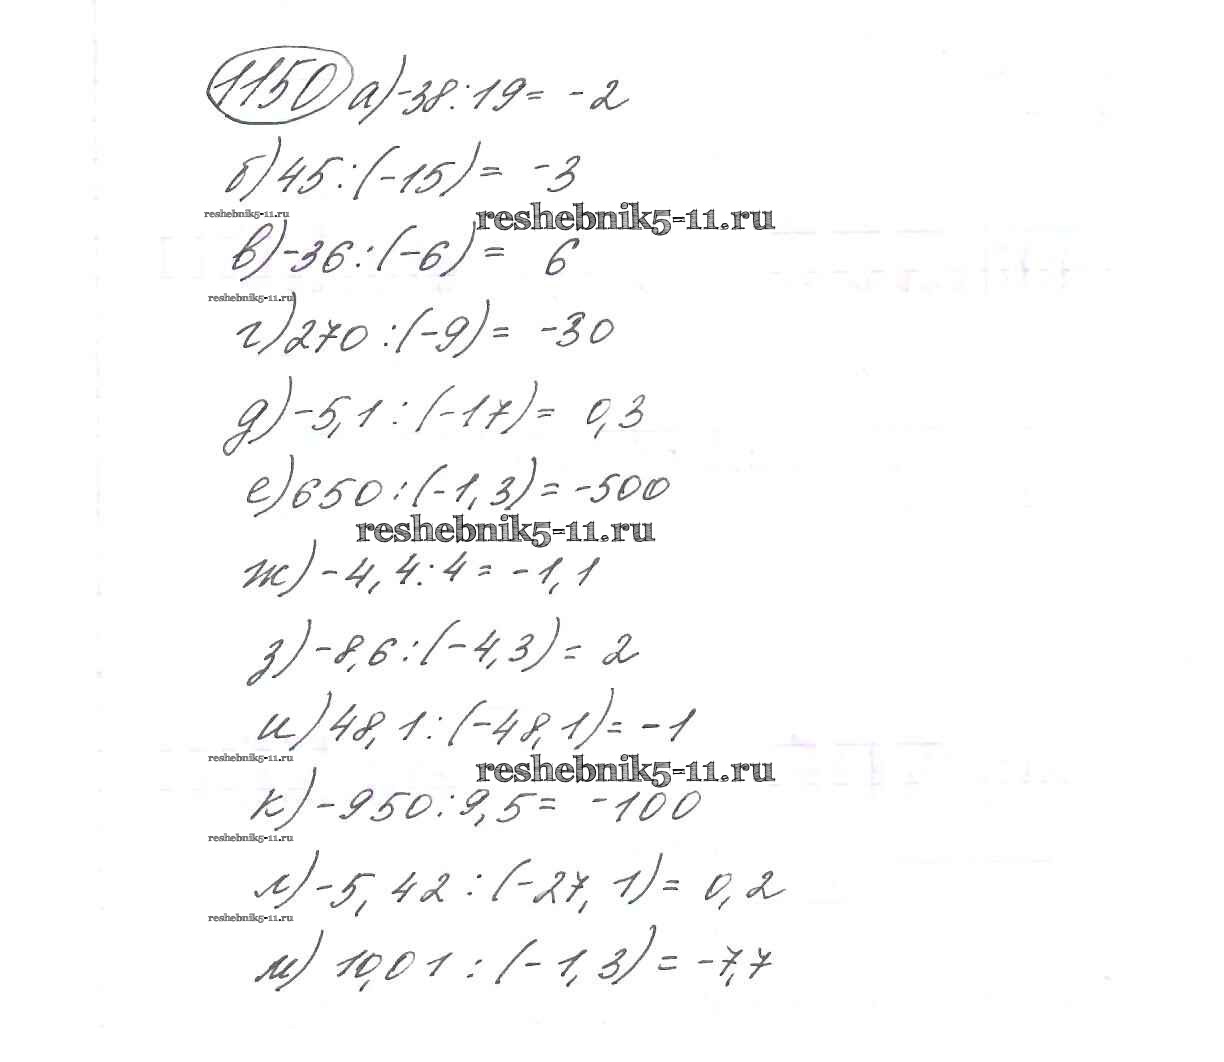 1150 а) -38:19= -2
б) 45:(-15)= -3
reshebnik5-11.ru
reshebnik5-11.ru
в) -36:(-6)= 6
reshebnik5-11.ru
г) 270:(-9)= -30
д) -5,1:(-17)= 0,3
е) 650:(-1,3)= -500
reshebnik5-11.ru
ж) -4,4:4= -1,1
з) -8,6:(-4,3)= 2
и) 48,1:(-48,1)= -1
reshebnik5-11.ru
reshebnik5-11.ru
к) -950:9,5= -100
reshebnik5-11.ru
л) -5,42:(-27,1)= 0,2
reshebnik5-11.ru
м) 10,01:(-1,3)= -7,7